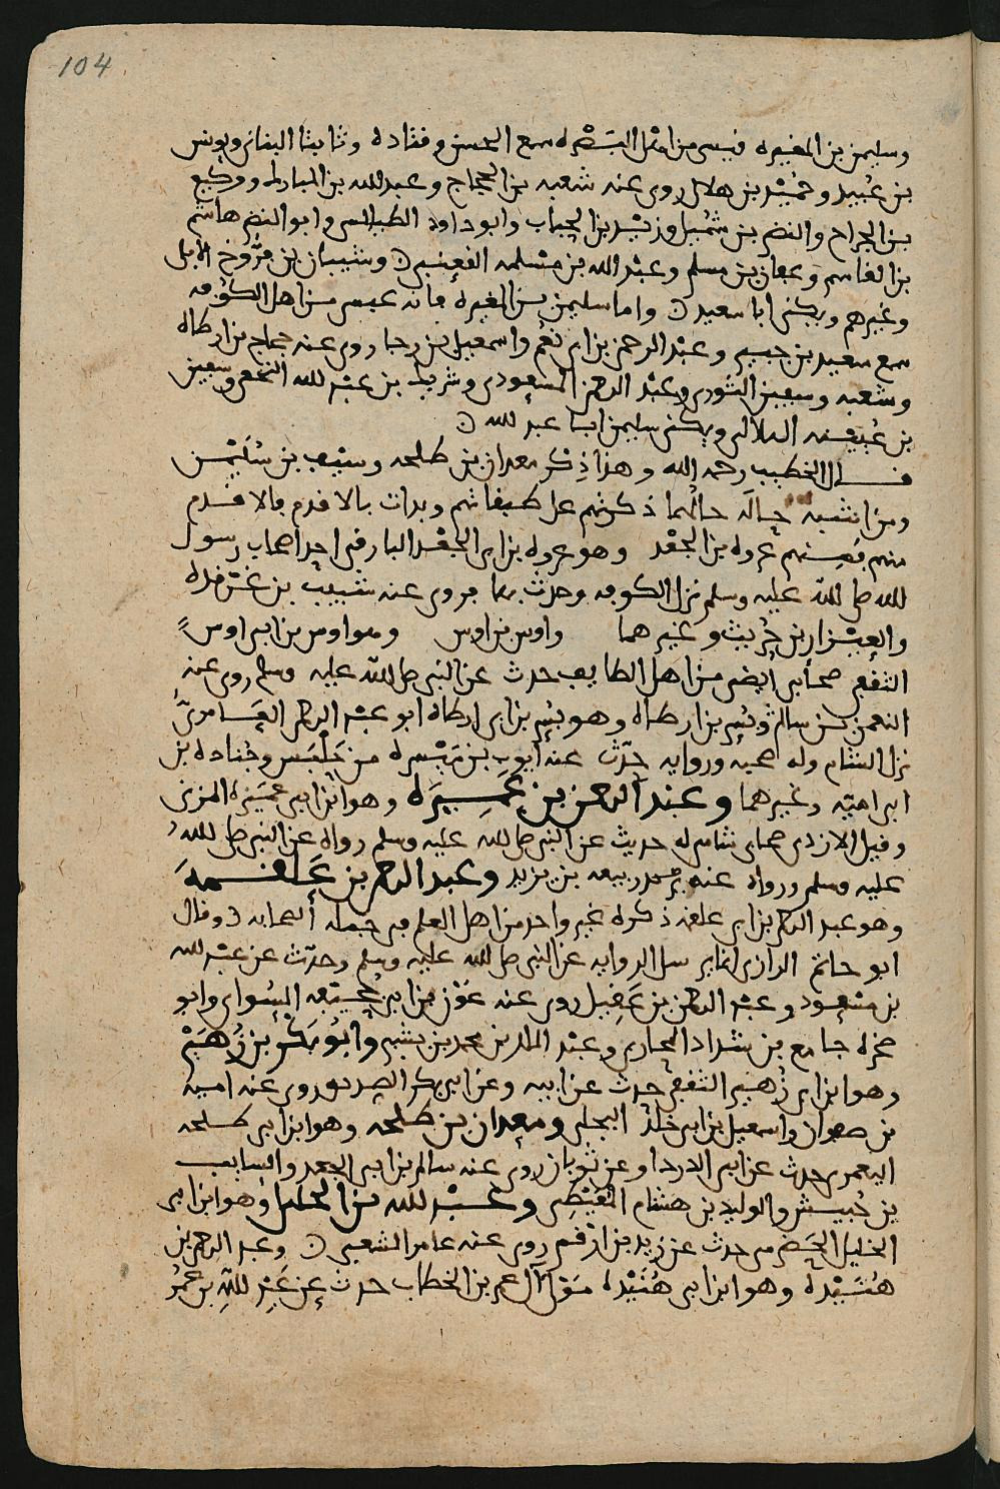 104
وسليمن بن المغيره قيسي من اهل البَصْره سمع الحسن وقتاده وثابتا البناني ويونس
بن عُبيد وحُمَيْد بن هلال روى عنه شعبه بن الحجاج وعبد الله بن المبارك ووكيع
بن الجراح والنضر بن شُميل وزيْد بن الحباب وابو داود الطيالسي وابو النضر هاشم
بن القاسم وعفان بن مسلم وعبْد الله بن مسْلمه القعنبي ن وشيبان بن فرُّوخ الابلى
وغيرهم ويكنى ابا سعيد ن واما سليمن بن المغيره فانه عبسي من اهل الكوفه
سمع سعيد بن جبير وعبْد الرحمن بن ابى نُعْم واسمعيل بن رجا روى عنه حجاج بن ارطاه
وشعبه وسفين الثورى وعبْد الرحمن المسعودى وشريك بن عبْد الله النخعي وسفين
بن عُيينه الهلالى ويكنى سليمن ابا عبد الله ن
قال الخطيب رحمه الله وهذا ذِكْر معدان بن طلحه وسيْف بن سُليْمن
ومن اشبه حالَه حالَهما ذكرتهم على طبقاتهم وبدات بالاقدم فالاقدم
منهم فمنهم عروه بن الجعْد وهو عروه بن ابى الجعْد البارقي احد اصحاب رسول
الله صلى الله عليه وسلم نزل الكوفه وحدث بها فروى عنه شبيب بن غرْقده
والعيْزار بن حُريث وغيرهما واوس بن اوس وهو اوس بن ابى اوس
الثقفي صحابى ايضا من اهل الطايف حدث عن النبى صلى الله عليه وسلم روى عنه
النعمن بن سالم وبُسر بن ارطاه وهو بُسر بن ابى ارطاه ابو عبْد الرحمن العَامرىّ
نزل الشام وله صحبه وروايه حدّث عنه ايوب بن مَيْسره بن حَلْبَس وجُناده بن
ابى اميّه وغيرهما وعبْد الرحمن بن عَمِيرَه وهو ابن ابى عَمِيره المزنى
وقيل الازدى صحابى شامى له حديث عن النبى صلى الله عليه وسلم رواه عن النبى صلى الله
عليه وسلم ورواه عنه ربيعه بن يزيد وعبد الرحمن بن عَلقمهَ
وهو عبد الرحمن بن ابى علقمه ذكره غير واحد من اهل العلم في جمله الصحابه ن وقال
ابو حاتم الرازى الروايه عن النبى صلى الله عليه وسلم وحدّث عن عبْد الله
بن مسْعود وعبْد الرحمن بن عَقِيل روى عنه عَوْن بن ابى جُحيْفه السُوائى وابو
صخره جامع بن شداد المحاربى وعبْد الملك بن محمد بن بشير وابُو بكْر بن زُهَيْر
وهو ابن ابى زُهَير الثقفي حدث عن ابيه وعن ابى بكر الصديق وروى عنه اميه
بن صفوان واسمعيل بن ابى خالد البجلى ومعدان بن طلحه وهو ابن ابى طلحه
اليعمرى حدث عن ابى الدردا وعن ثوبان روى عنه سالم بن ابى الجعد والسايب
بن حُبيش والوليد بن هشام المُعَيْطِى وعَبْد الله بن الخليل وهو ابن ابى
الخليل الحَضْرمى حدث عن زيد بن ارْقم روى عنه عامر الشعبى ن وعبد الرحمن بن
هُنَيْده وهو ابن ابى هُنَيْده مَوْلى آل عمر بن الخطاب حدث عن عَبْد اللهِ بن عُمرَ